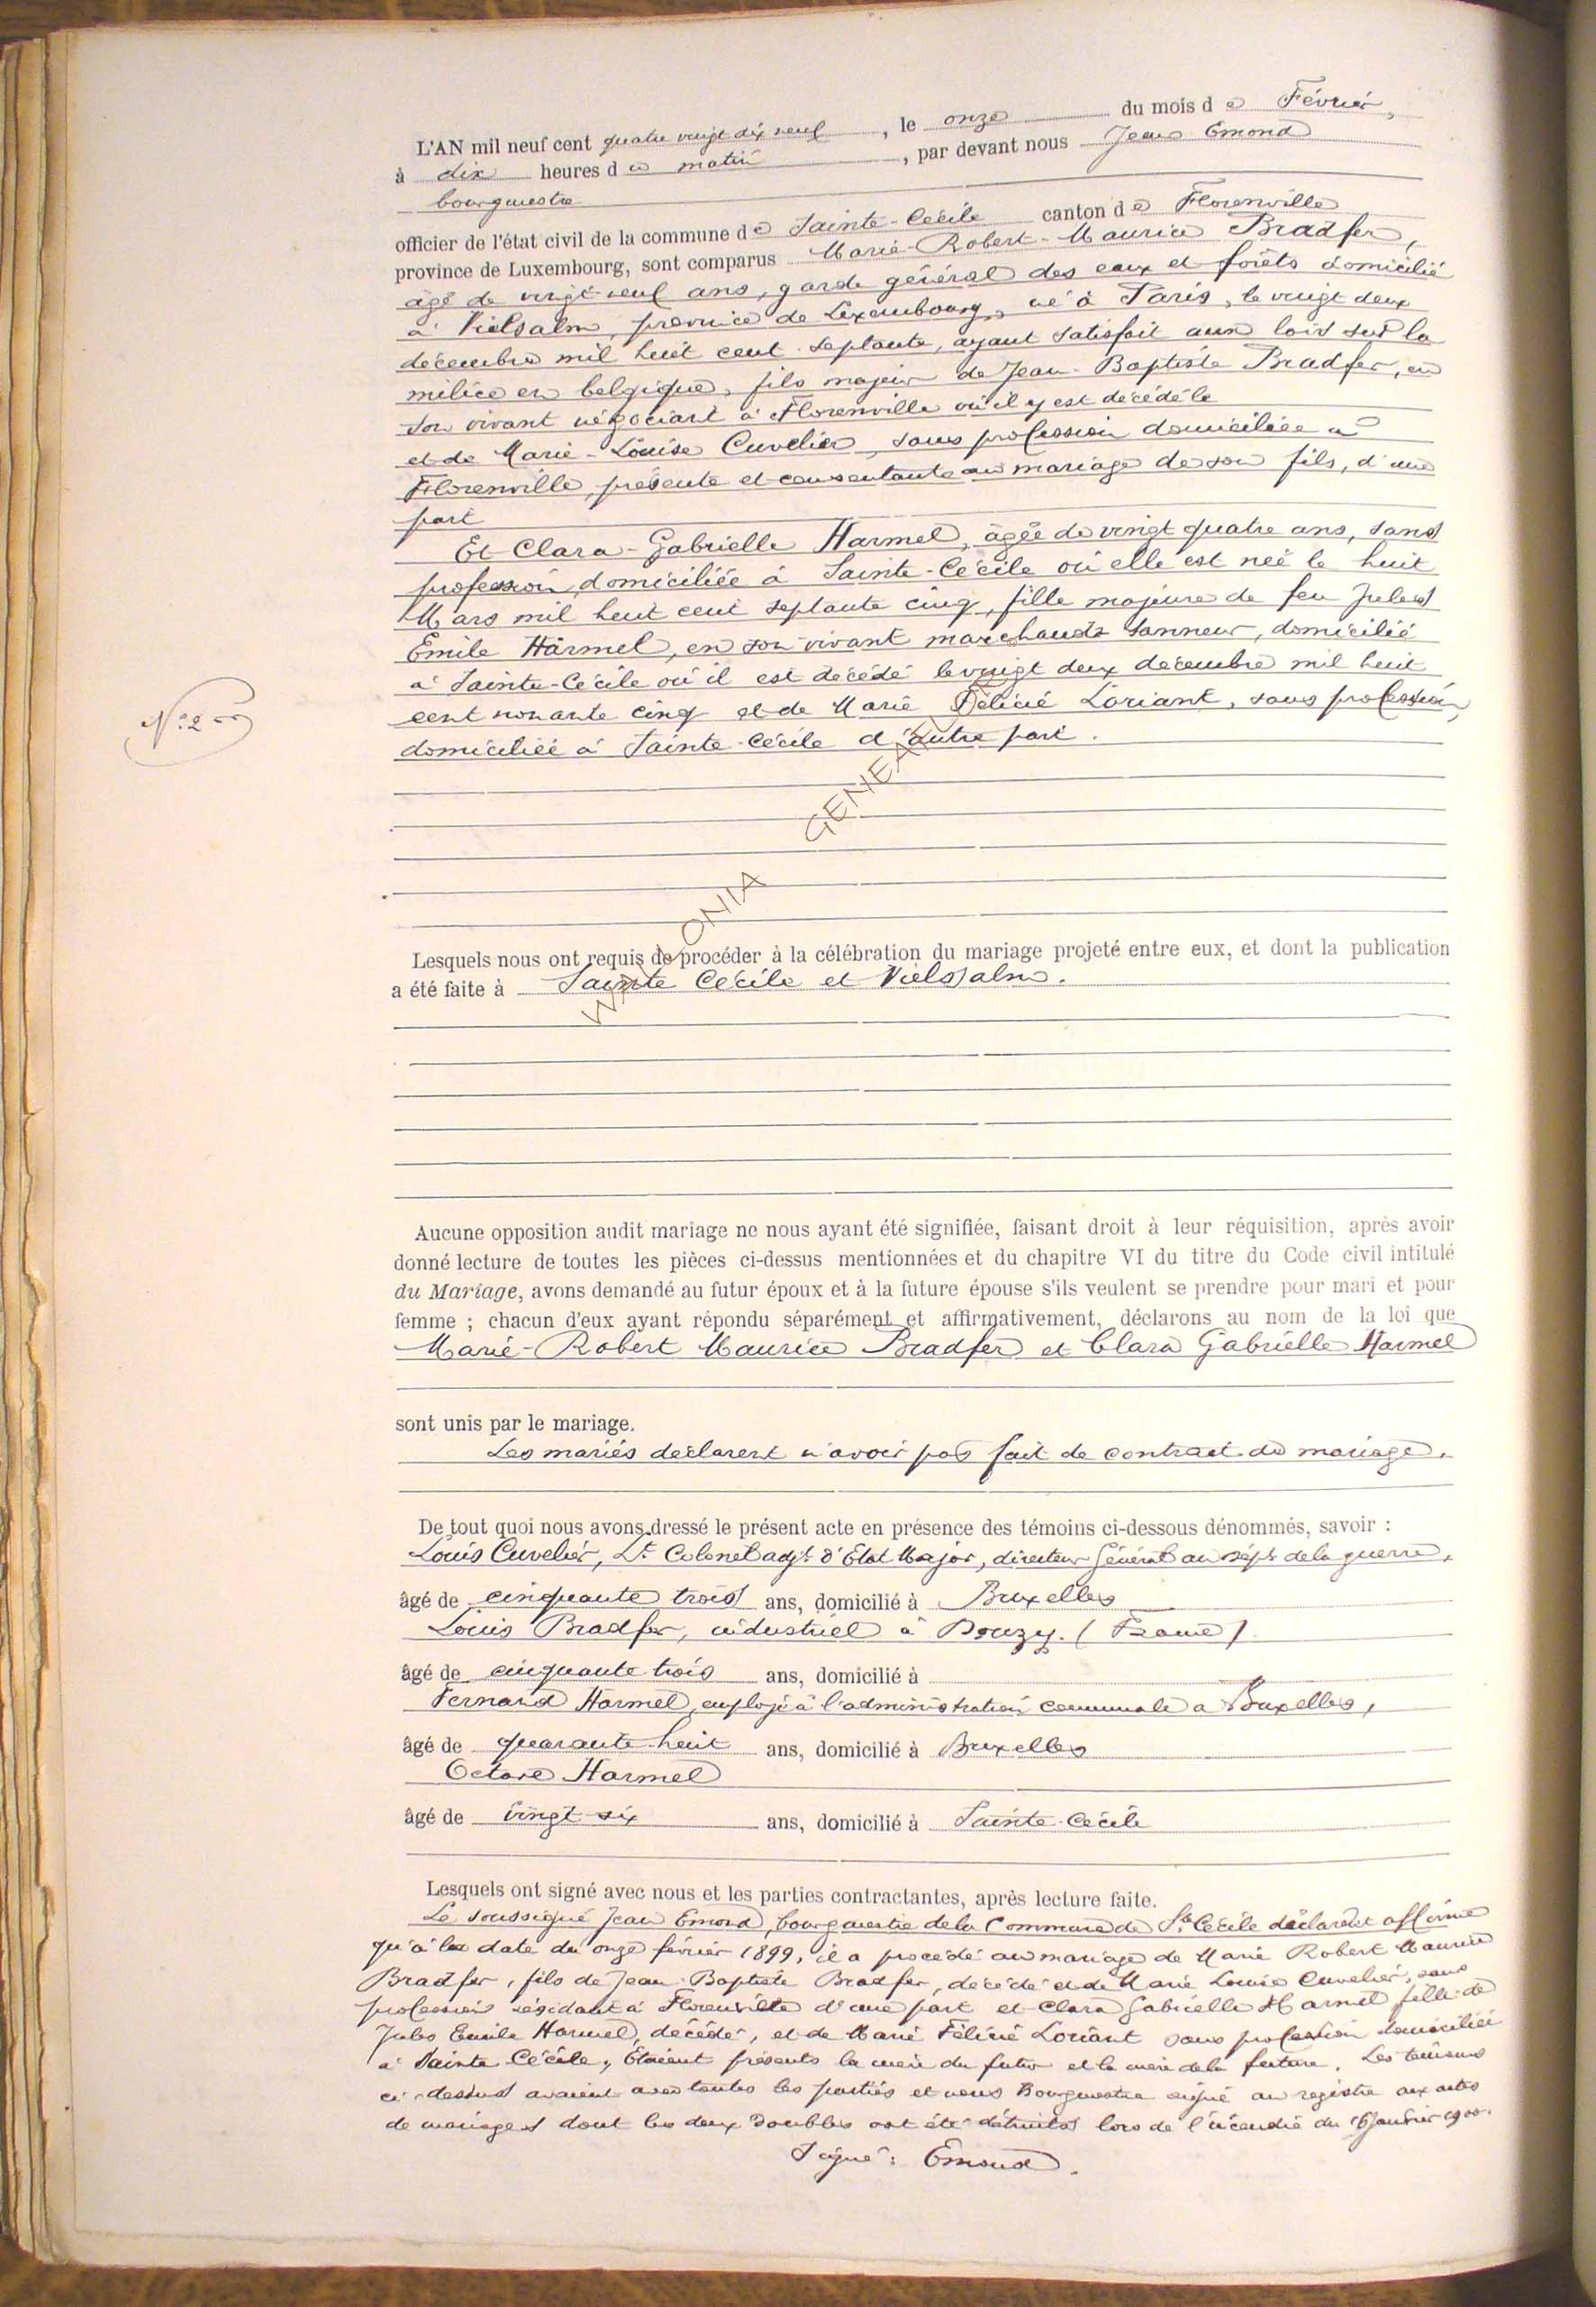 L'AN mil neuf cent quatre vingt dix neuf, le onze du mois de Février,
à dix heures du matin, par devant nous Jean Emond
bourgmestre
officier de l'état civil de la commune de Sainte-Cécile canton de Florenville
province de Luxembourg, sont comparus Marie-Robert-Maurice Bradfer,
âgé de vingt-neuf ans, garde général des eaux et forêts domicilié
à Vielsalm, province de Luxembourg, né à Paris, le vingt deux
décembre mil huit cent septante, ayant satisfait aux lois sur la
milice en belgique, fils majeur de Jean-Baptiste Bradfer, en
son vivant négociant à Florenville où il y est décédé le
et de Marie-Louise Cuvelier, sans profession domiciliée à
Florenville, présente et consentante au mariage de son fils, d'une
part
Et Clara-Gabrielle Harmel, âgée de vingt quatre ans, sans
profession domiciliée à Sainte-Cécile où elle est née le huit
Mars mil huit cent septante cinq, fille majeure de feu Jules
Emile Harmel, en son vivant marchand tanneur, domicilié
à Sainte-Cécile où il est décédé le vingt deux décembre mil huit
cent nonante cinq et de Marie Félicie Loriant, sans profession,
domiciliée à Sainte-Cécile d'autre part.
N° 2
WALLONIA GENEA
Lesquels nous ont requis de procéder à la célébration du mariage projeté entre eux, et dont la publication
a été faite à Sainte Cécile et Vielsalm.
Aucune opposition audit mariage ne nous ayant été signifiée, faisant droit à leur réquisition, après avoir
donné lecture de toutes les pièces ci-dessus mentionnées et du chapitre VI du titre du Code civil intitulé
du Mariage, avons demandé au futur époux et à la future épouse s'ils veulent se prendre pour mari et pour
femme ; chacun d'eux ayant répondu séparément et affirmativement, déclarons au nom de la loi que
Marie-Robert Maurice Bradfer et Clara Gabrielle Harmel
sont unis par le mariage.
Les mariés déclarent n'avoir pas fait de contract de mariage.
De tout quoi nous avons dressé le présent acte en présence des témoins ci-dessous dénommés, savoir :
Louis Cuvelier, Lt Colonel adjt d'Etat Major, directeur Général au dépt de la guerre,
âgé de cinquante trois ans, domicilié à Bruxelles
Louis Bradfer, industriel à Douzy. (France)
âgé de cinquante trois ans, domicilié à
Fernand Harmel, employé à l'administration communale à Bruxelles,
âgé de quarante huit ans, domicilié à Bruxelles
Octave Harmel
âgé de vingt-six ans, domicilié à Sainte-Cécile
Lesquels ont signé avec nous et les parties contractantes, après lecture faite.
Le soussigné Jean Emond, bourgmestre de la Commune de Ste Cécile déclare et affirme
qu'à la date du onze février 1899, il a procédé au mariage de Marie Robert Maurice
Bradfer, fils de Jean-Baptiste Bradfer, décédé et de Marie Louise Cuvelier, sans
profession résidant à Florenville d'une part et Clara Gabrielle Harmel fille de
Jules Emile Harmel, décédé, et de Marie Félicie Loriant sans profession domiciliée
à Sainte Cécile, Etaient présents la mère du futur et la mère de la future. Les témoins
ci-dessus avaient avec toutes les parties et nous Bourgmestre signé au registre aux actes
de mariages dont les deux doubles ont été détruits lors de l'incendie du 16 Janvier 1900.
Signé : Emond.